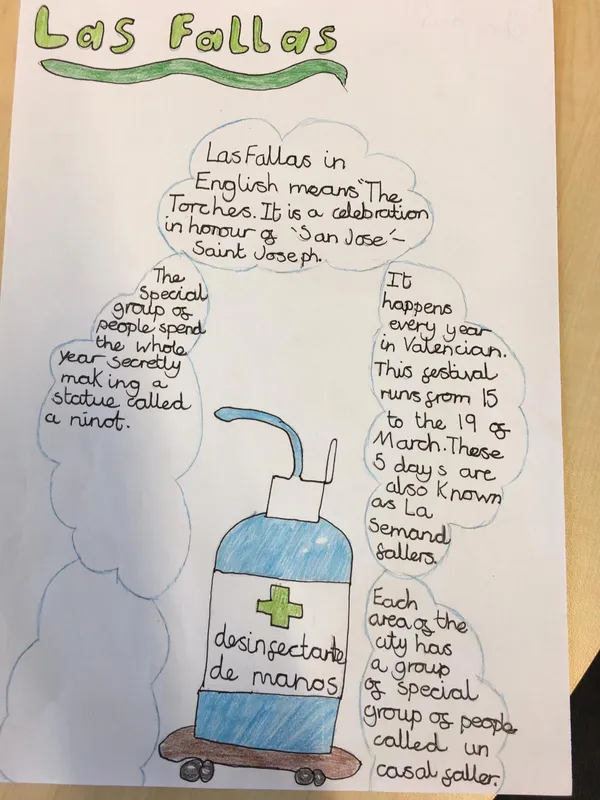 Las Fallas
Las Fallas in
English means "The
Torches. It is a celebration
in honour of 'San Jose' -
Saint Joseph.
The
special
group of
people spend
the whole
year secretly
making a
statue called
a ninot.
It
happens
every year
in Valencian.
This festival
runs from 15
to the 19 of
March. These
5 days are
also known
as La
Semand
fallers.
Each
area of the
city has
a group
of special
group of people
called un
casal faller.
desinfectante
de manos